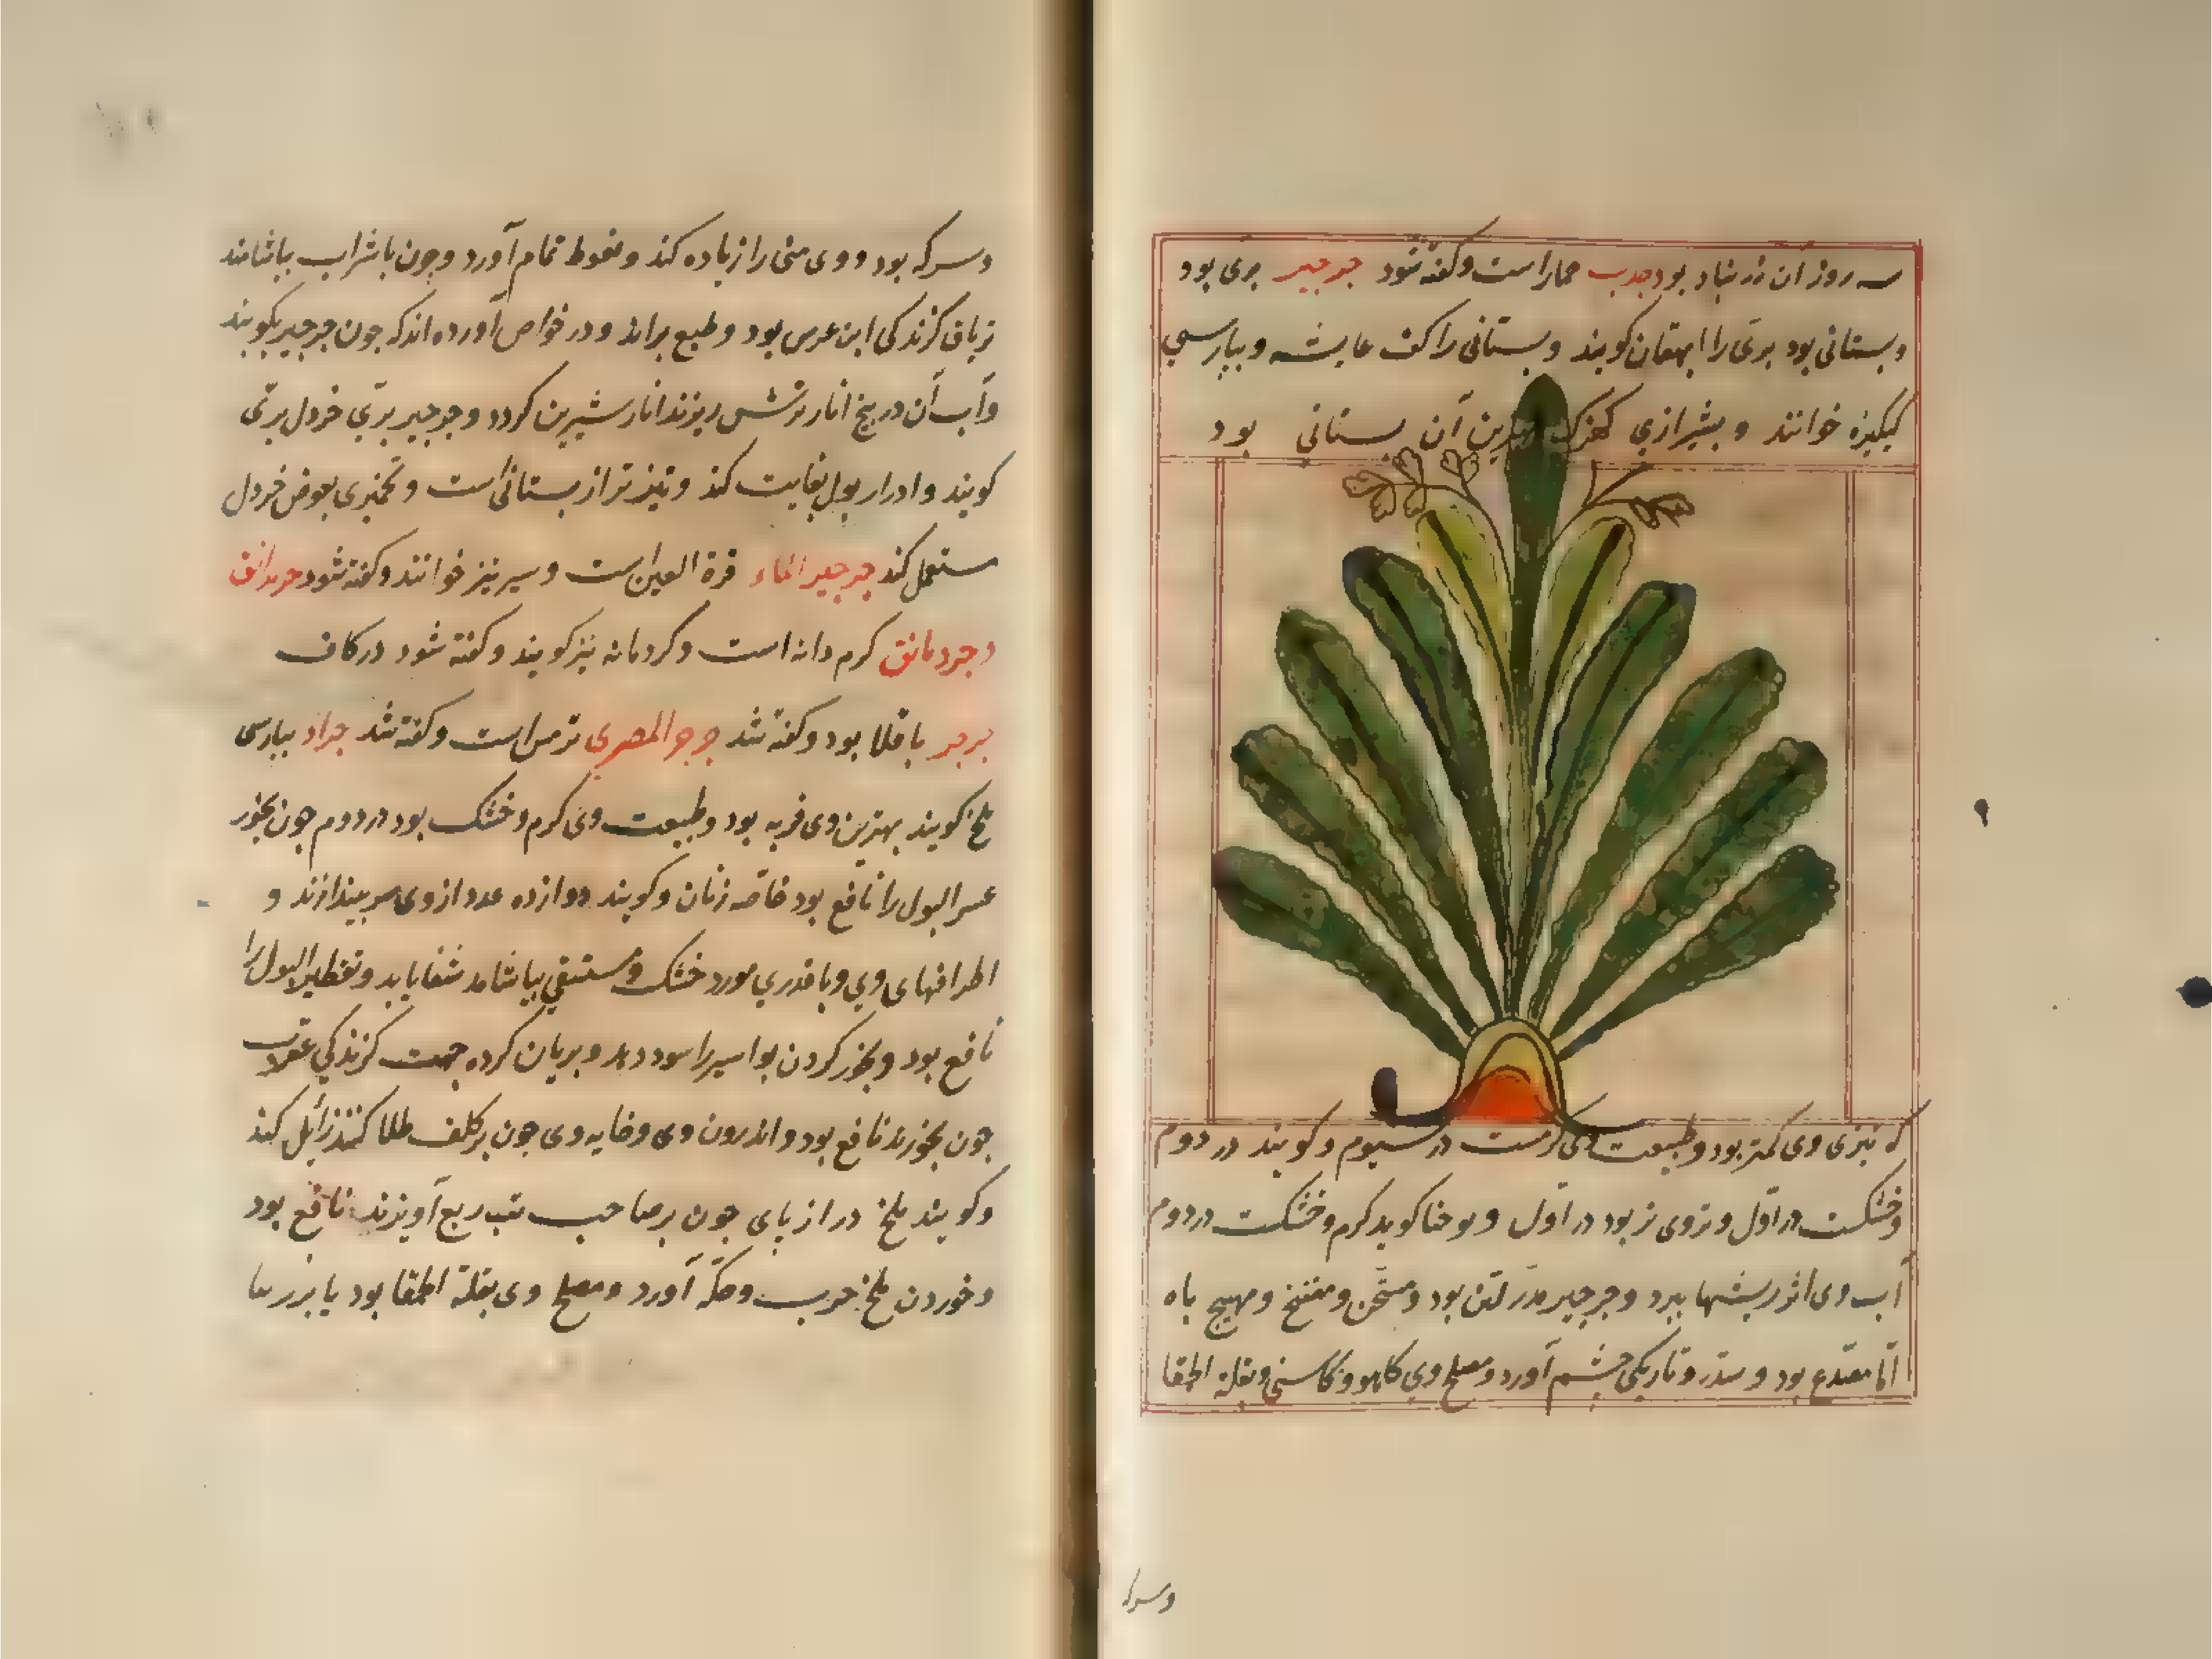 سه روز آن زر نباد بود جدب حمارا است و کفته شود جرجیر بری بود
و بستانی بود بری را ایهقان کویند و بستانی را کث عایشه و بپارسی
کیکیزه خوانند و بشیرازی کهزک بهترین آن بستانی بود
که تیزی وی کمتر بود و طبیعت وی کرمست در سیوم و کویند در دوم
و خشکست در اول و تروی تر بود در اول و یوحنا کوید کرم و خشکست در دوم
آب وی اثر ریشها ببرد و جرجیر مدر لبن بود و مسخن و منفخ و مهیج باه
اما مصدع بود و سدر و تاریکی چشم آورد و مصلح وی کاهو و کاسنی و بقلة الحمقا
و سرکه
و سرکه بود و وی منی را زیاده کند و نعوظ تمام آورد و چون با شراب بیاشامند
تریاق کزندکی ابن عرس بود و طبع براند و در خواص آورده اند که چون جرجیر بکوبند
و آب آن در بیخ انار ترش ریزند انار شیرین کردد و جرجیر بری خردل بری
کویند و ادرار بول بغایت کند و تیزتر از بستانی است و تخم بری بعوض خردل
مستعمل کند جرجیر الماء قرة العین است و سیر نیز خوانند و کفته شود
و جردمانق کرم دانه است و کردمانه نیز کویند و کفته شود در کاف
جرجر باقلا بود و کفته شد جرجر المصری ترمس است و کفته شد جراد بپارسی
ملخ کویند بهترین وی فربه بود و طبیعت وی کرم و خشک بود در دوم چون بخور
عسر البول را نافع بود خاصه زنان و کویند دوازده عدد از وی سر بیندازند و
اطرافهای وی و با قدری مورد خشک و مستسقی بیاشامد شفا یابد و تقطیر البول را
نافع بود و بخور کردن بواسیر را سود دهد و بریان کرده جهت کزندکی عقرب
چون بخورند نافع بود و اندرون وی و خایه وی چون بر کلف طلا کنند زایل کند
و کویند ملخ دراز پای چون بر صاحب تب ربع آویزند نافع بود
و خوردن ملخ جرب و حکه آورد و مصلح وی بقلة الحمقا بود یا بزر